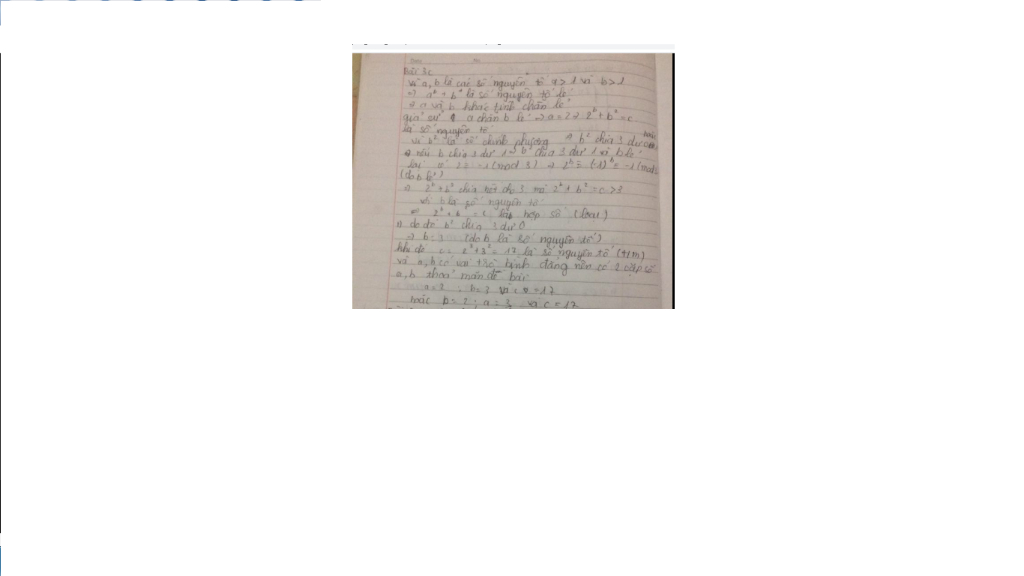 Bài 3c
vì a, b là các số nguyên tố a > 1 và b > 1
⇒ aᵇ + bᵃ là số nguyên tố lẻ
⇒ a và b khác tính chẵn lẻ
giả sử a chẵn b lẻ ⇒ a = 2 ⇒ 2ᵇ + b² = c
là số nguyên tố
vì b² là số chính phương ⇒ b² chia 3 dư
⇒ nếu b chia 3 dư 1 ⇒ b² chia 3 dư 1 và b lẻ
2 ≡ -1 (mod 3) ⇒ 2ᵇ ≡ (-1)ᵇ ≡ -1 (mod
(do b lẻ)
⇒ 2ᵇ + b² chia hết cho 3 mà 2ᵇ + b² = c > 3
là số nguyên tố
là hợp số (loại)
⇒ do đó b² chia 3 dư 0
⇒ b = 3 (do b là số nguyên tố)
khi đó c = 2³ + 3² = 17 là số nguyên tố (t/m)
vì a, b có vai trò bình đẳng nên có 2 cặp số
a, b thoả mãn đề bài
a = 2 ; b = 3 và c = 17
hoặc b = 2 ; a = 3 và c = 17